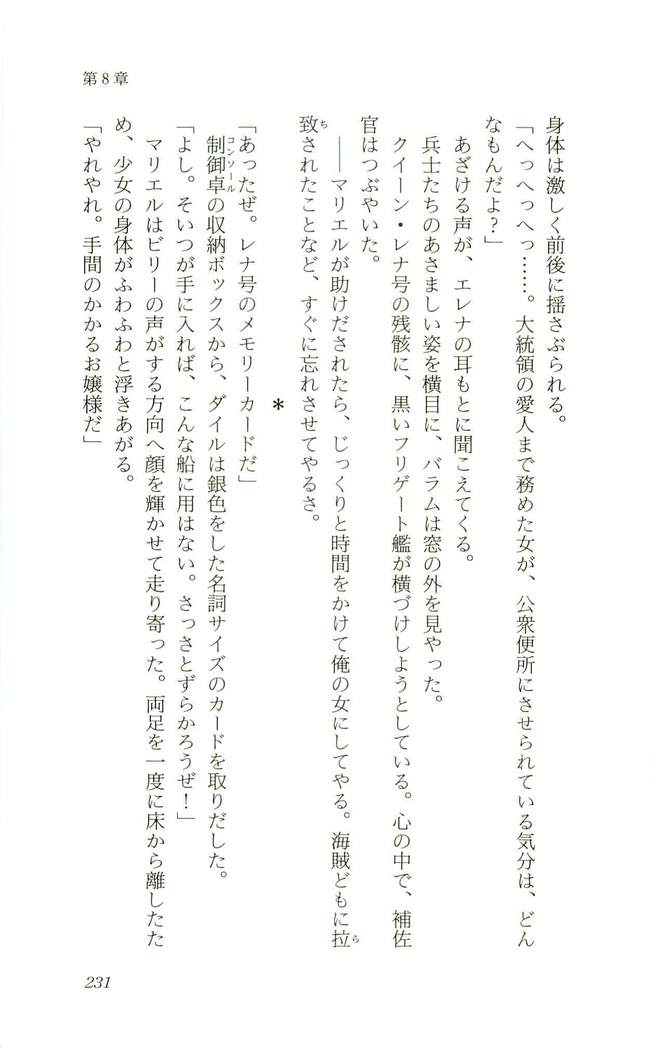 第8章
身体は激しく前後に揺さぶられる。
「へっへっへっ……。大統領の愛人まで務めた女が、公衆便所にさせられている気分は、どん
なもんだよ？」
あざける声が、エレナの耳もとに聞こえてくる。
兵士たちのあさましい姿を横目に、バラムは窓の外を見やった。
クイーン・レナ号の残骸に、黒いフリゲート艦が横づけしようとしている。心の中で、補佐
官はつぶやいた。
――マリエルが助けだされたら、じっくりと時間をかけて俺の女にしてやる。海賊どもに拉
致されたことなど、すぐに忘れさせてやるさ。
＊
「あったぜ。レナ号のメモリーカードだ」
制御卓の収納ボックスから、ダイルは銀色をした名詞サイズのカードを取りだした。
「よし。そいつが手に入れば、こんな船に用はない。さっさとずらかろうぜ！」
マリエルはビリーの声がする方向へ顔を輝かせて走り寄った。両足を一度に床から離したた
め、少女の身体がふわふわと浮きあがる。
「やれやれ。手間のかかるお嬢様だ」
231